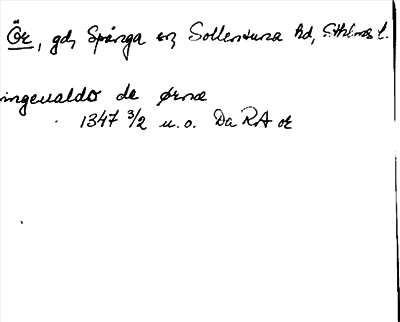 Ör, gd, Spånga sn, Sollentuna hd, Sthlms l.
ingeualdo de ørnæ
1347 3/2 u.o. Da RA or